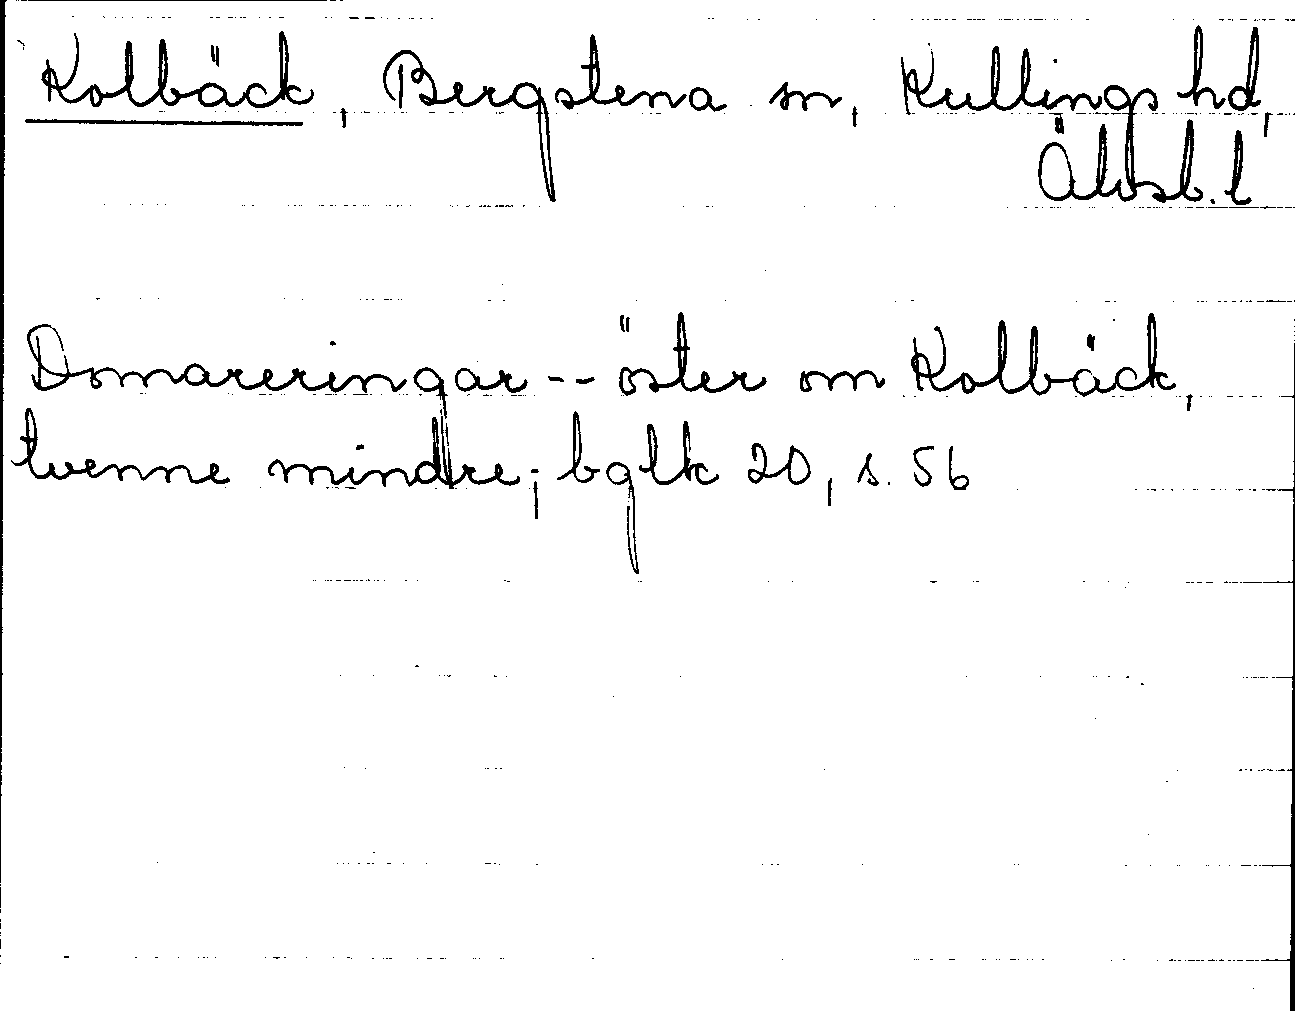 Kolbäck, Bergstena sn, Kullings hd,
Älvsb. l
Domareringar -- öster om Kolbäck,
tvenne mindre; bglk 20, s. 56